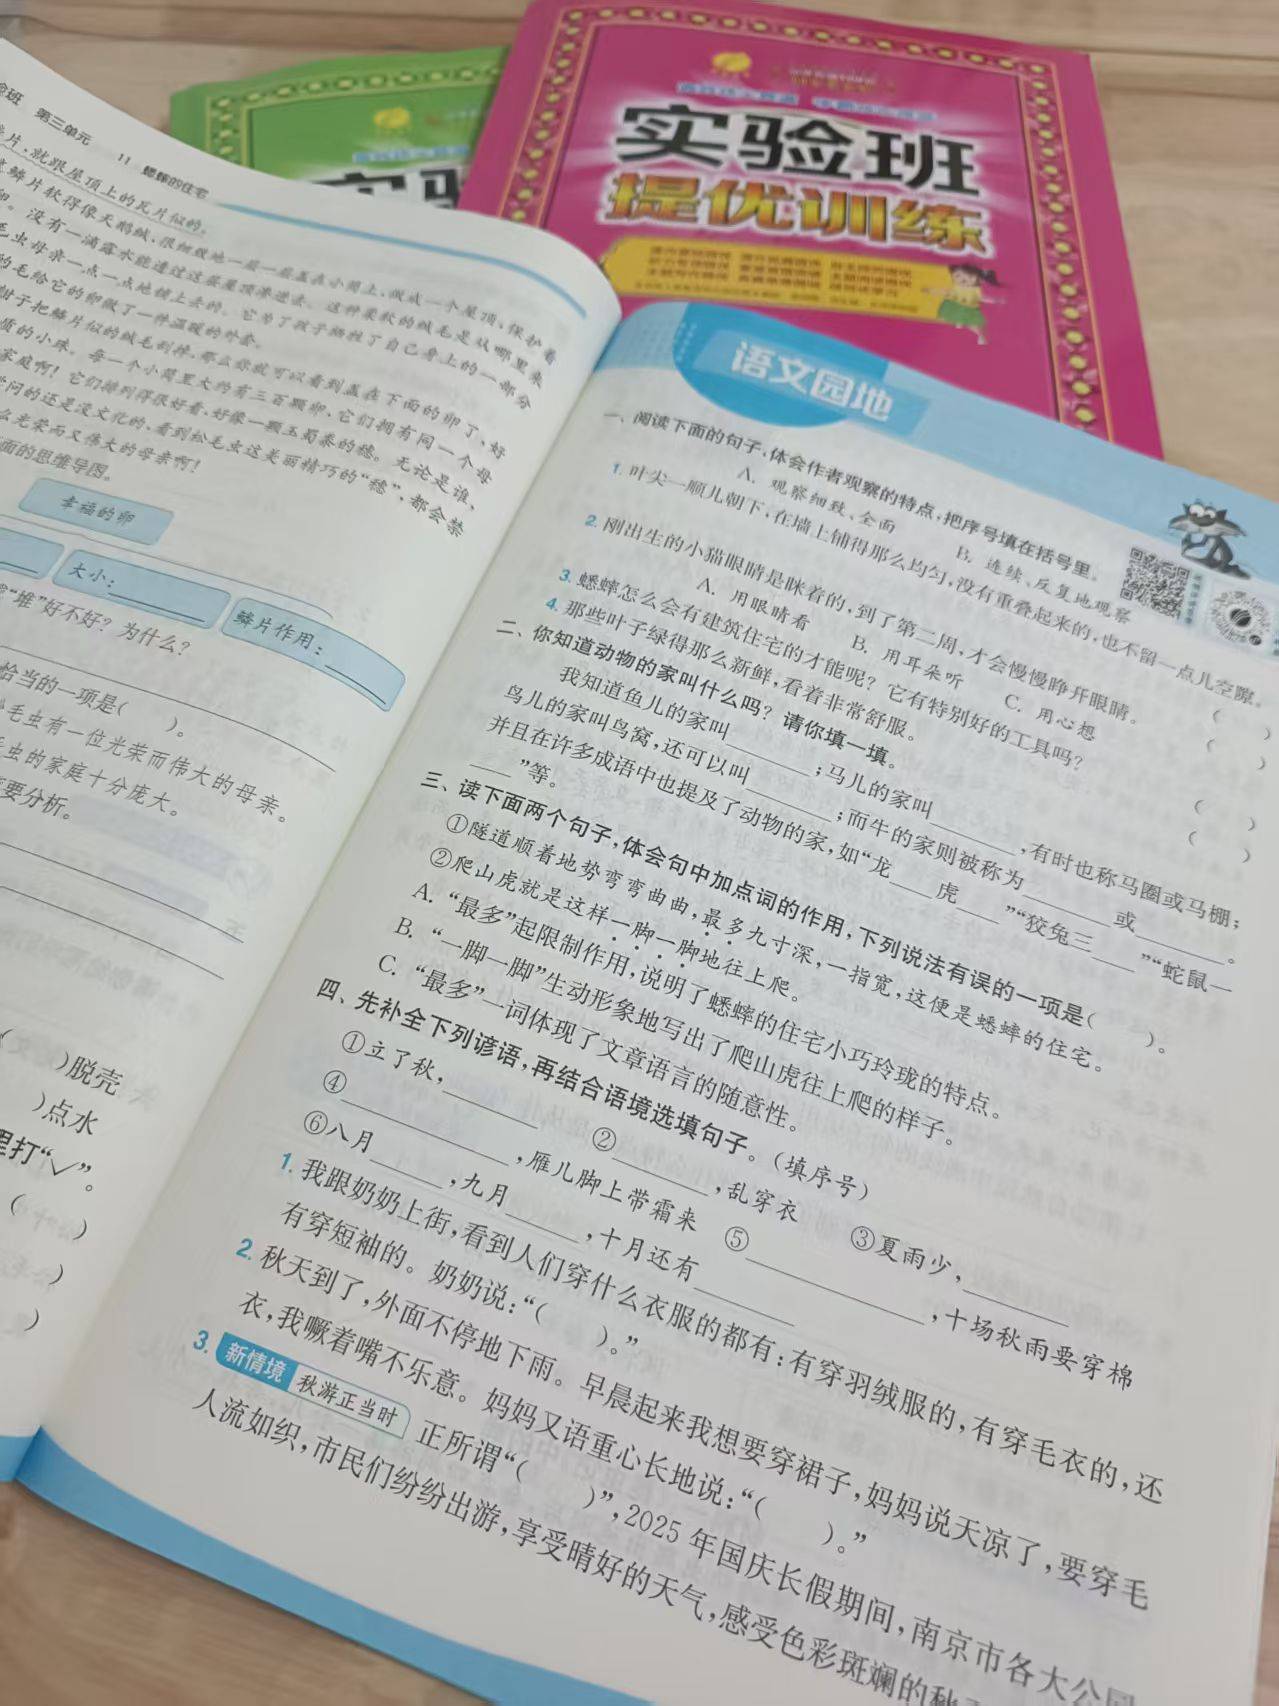 实验班
提优训练
第三单元
11 蟋蟀的住宅
片，就跟屋顶上的瓦片似的。
鳞片软得像天鹅绒，很细致地一层一层盖在小筒上，做成一个屋顶，保护着
。没有一滴露水能透过这层屋顶渗进去。这种柔软的绒毛是从哪里来
毛虫母亲一点一点地铺上去的。它为了孩子牺牲了自己身上的一部分
的毛给它的卵做了一件温暖的外套。
钳子把鳞片似的绒毛刮掉，那么你就可以看到盖在下面的卵了，好
质的小珠。每一个小筒里大约有三百颗卵，它们拥有同一个母
家庭啊！它们排列得很好看，好像一颗玉蜀黍的穗。无论是谁，
学问的还是没文化的，看到松毛虫这美丽精巧的“穗”，都会禁
么光荣而又伟大的母亲啊！
面的思维导图。
幸福的卵
大小：
鳞片作用：
“堆”好不好？为什么？
恰当的一项是（ ）。
毛虫有一位光荣而伟大的母亲。
虫的家庭十分庞大。
要分析。
（ ）脱壳
）点水
里打“√”。
（ ）
）
）
语文园地
一、阅读下面的句子，体会作者观察的特点，把序号填在括号里。
A. 观察细致、全面 B. 连续、反复地观察
1. 叶尖一顺儿朝下，在墙上铺得那么均匀，没有重叠起来的，也不留一点儿空隙。（ ）
2. 刚出生的小猫眼睛是眯着的，到了第二周，才会慢慢睁开眼睛。（ ）
A. 用眼睛看 B. 用耳朵听 C. 用心想
3. 蟋蟀怎么会有建筑住宅的才能呢？它有特别好的工具吗？（ ）
4. 那些叶子绿得那么新鲜，看着非常舒服。（ ）
二、你知道动物的家叫什么吗？请你填一填。
我知道鱼儿的家叫______；马儿的家叫______，有时也称马圈或马棚；
鸟儿的家叫鸟窝，还可以叫______；而牛的家则被称为______或______。
并且在许多成语中也提及了动物的家，如“龙___虎___”“狡兔三___”“蛇鼠一
___”等。
三、读下面两个句子，体会句中加点词的作用，下列说法有误的一项是（ ）。
①隧道顺着地势弯弯曲曲，最多九寸深，一指宽，这便是蟋蟀的住宅。
②爬山虎就是这样一脚一脚地往上爬。
A. “最多”起限制作用，说明了蟋蟀的住宅小巧玲珑的特点。
B. “一脚一脚”生动形象地写出了爬山虎往上爬的样子。
C. “最多”一词体现了文章语言的随意性。
四、先补全下列谚语，再结合语境选填句子。（填序号）
①立了秋，______ ②______，乱穿衣 ③夏雨少，______
④______，雁儿脚上带霜来 ⑤______，十场秋雨要穿棉
⑥八月______，九月______，十月还有______
1. 我跟奶奶上街，看到人们穿什么衣服的都有：有穿羽绒服的，有穿毛衣的，还
有穿短袖的。奶奶说：“（ ）。”
2. 秋天到了，外面不停地下雨。早晨起来我想要穿裙子，妈妈说天凉了，要穿毛
衣，我噘着嘴不乐意。妈妈又语重心长地说：“（ ）。”
3. 新情境 秋游正当时 正所谓“（ ）”，2025年国庆长假期间，南京市各大公园
人流如织，市民们纷纷出游，享受晴好的天气，感受色彩斑斓的秋